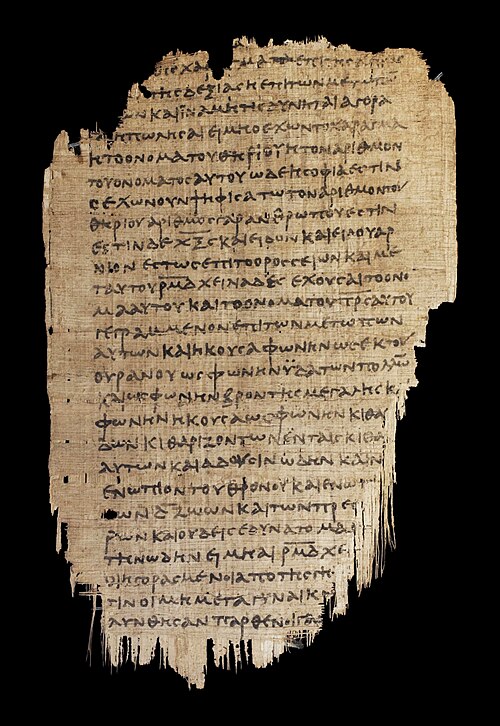 ΧΑΡΑΓΜΑΤΑΕΠΙΤΗϹ
ΤΗϹΔΕΞΙΑϹΗΕΠΙΤΩΝΜΕΤΩΠΩ
ΩΝΚΑΙΪΝΑΜΗΤΙϹΔΥΝΗΤΑΙΑΓΟΡΑ
ΗΠΩΛΗϹΑΙΕΙΜΗΟΕΧΩΝΤΟΧΑΡΑΓΜΑ
ΗΤΟΟΝΟΜΑΤΟΥΘΗΡΙΟΥΗΤΟΝΑΡΙΘΜΟΝ
ΤΟΥΟΝΟΜΑΤΟϹΑΥΤΟΥΩΔΕΗϹΟΦΙΑΕϹΤΙΝ
ΟΕΧΩΝΝΟΥΝΨΗΦΙϹΑΤΩΤΟΝΑΡΙΘΜΟΝΤΟΥ
ΘΗΡΙΟΥΑΡΙΘΜΟϹΓΑΡΑΝΘΡΩΠΟΥΕϹΤΙΝ
ΕϹΤΙΝΔΕΧ̅Ξ̅Ϛ̅ΚΑΙΕΙΔΟΝΚΑΙΕΙΔΟΥΑΡ
ΝΙΟΝΕϹΤΩϹΕΠΙΤΟΟΡΟϹϹΕΙΩΝΚΑΙΜΕ
ΤΑΥΤΟΥΡ̅Μ̅Δ̅ΧΕΙΛΙΑΔΕϹΕΧΟΥϹΑΙΤΟΟΝΟ
ΜΑΑΥΤΟΥΚΑΙΤΟΟΝΟΜΑΤΟΥΠ̅Ρ̅Ϲ̅ΑΥΤΟΥ
ΓΕΓΡΑΜΜΕΝΟΝΕΠΙΤΩΝΜΕΤΩΠΩΝ
ΑΥΤΩΝΚΑΙΗΚΟΥϹΑΦΩΝΗΝΩϹΕΚΤΟΥ
ΟΥΡΑΝΟΥΩϹΦΩΝΗΝΫΔΑΤΩΝΠΟΛΛΩ̅
ΚΑΙΩϹΦΩΝΗΝΒΡΟΝΤΗϹΜΕΓΑΛΗϹΚ
ΦΩΝΗΝΗΚΟΥϹΑΩϹΦΩΝΗΝΚΙΘΑ
ΔΩΝΚΙΘΑΡΙΖΟΝΤΩΝΕΝΤΑΙϹΚΙΘΑ
ΑΥΤΩΝΚΑΙΑΔΟΥϹΙΝΩΔΗΝΚΑΙΝ
ΕΝΩΠΙΟΝΤΟΥΘΡΟΝΟΥΚΑΙΕΝΩΠ
ΤΩΝΔ̅ΖΩΩΝΚΑΙΤΩΝΠΡΕϹ
ΡΩΝΚΑΙΟΥΔΕΙϹΕΔΥΝΑΤΟΜΑΘ
ΤΗΝΩΔΗΝΕΙΜΗΑΙΡ̅Μ̅Δ̅ΧΕΙ
ΟΙΗΓΟΡΑϹΜΕΝΟΙΑΠΟΤΗϹΓΗ
ΤΙΝΟΙΜΗΜΕΤΑΓΥΝΑΙΚ
ΛΥΝΘΗϹΑΝΠΑΡΘΕΝΟΙ